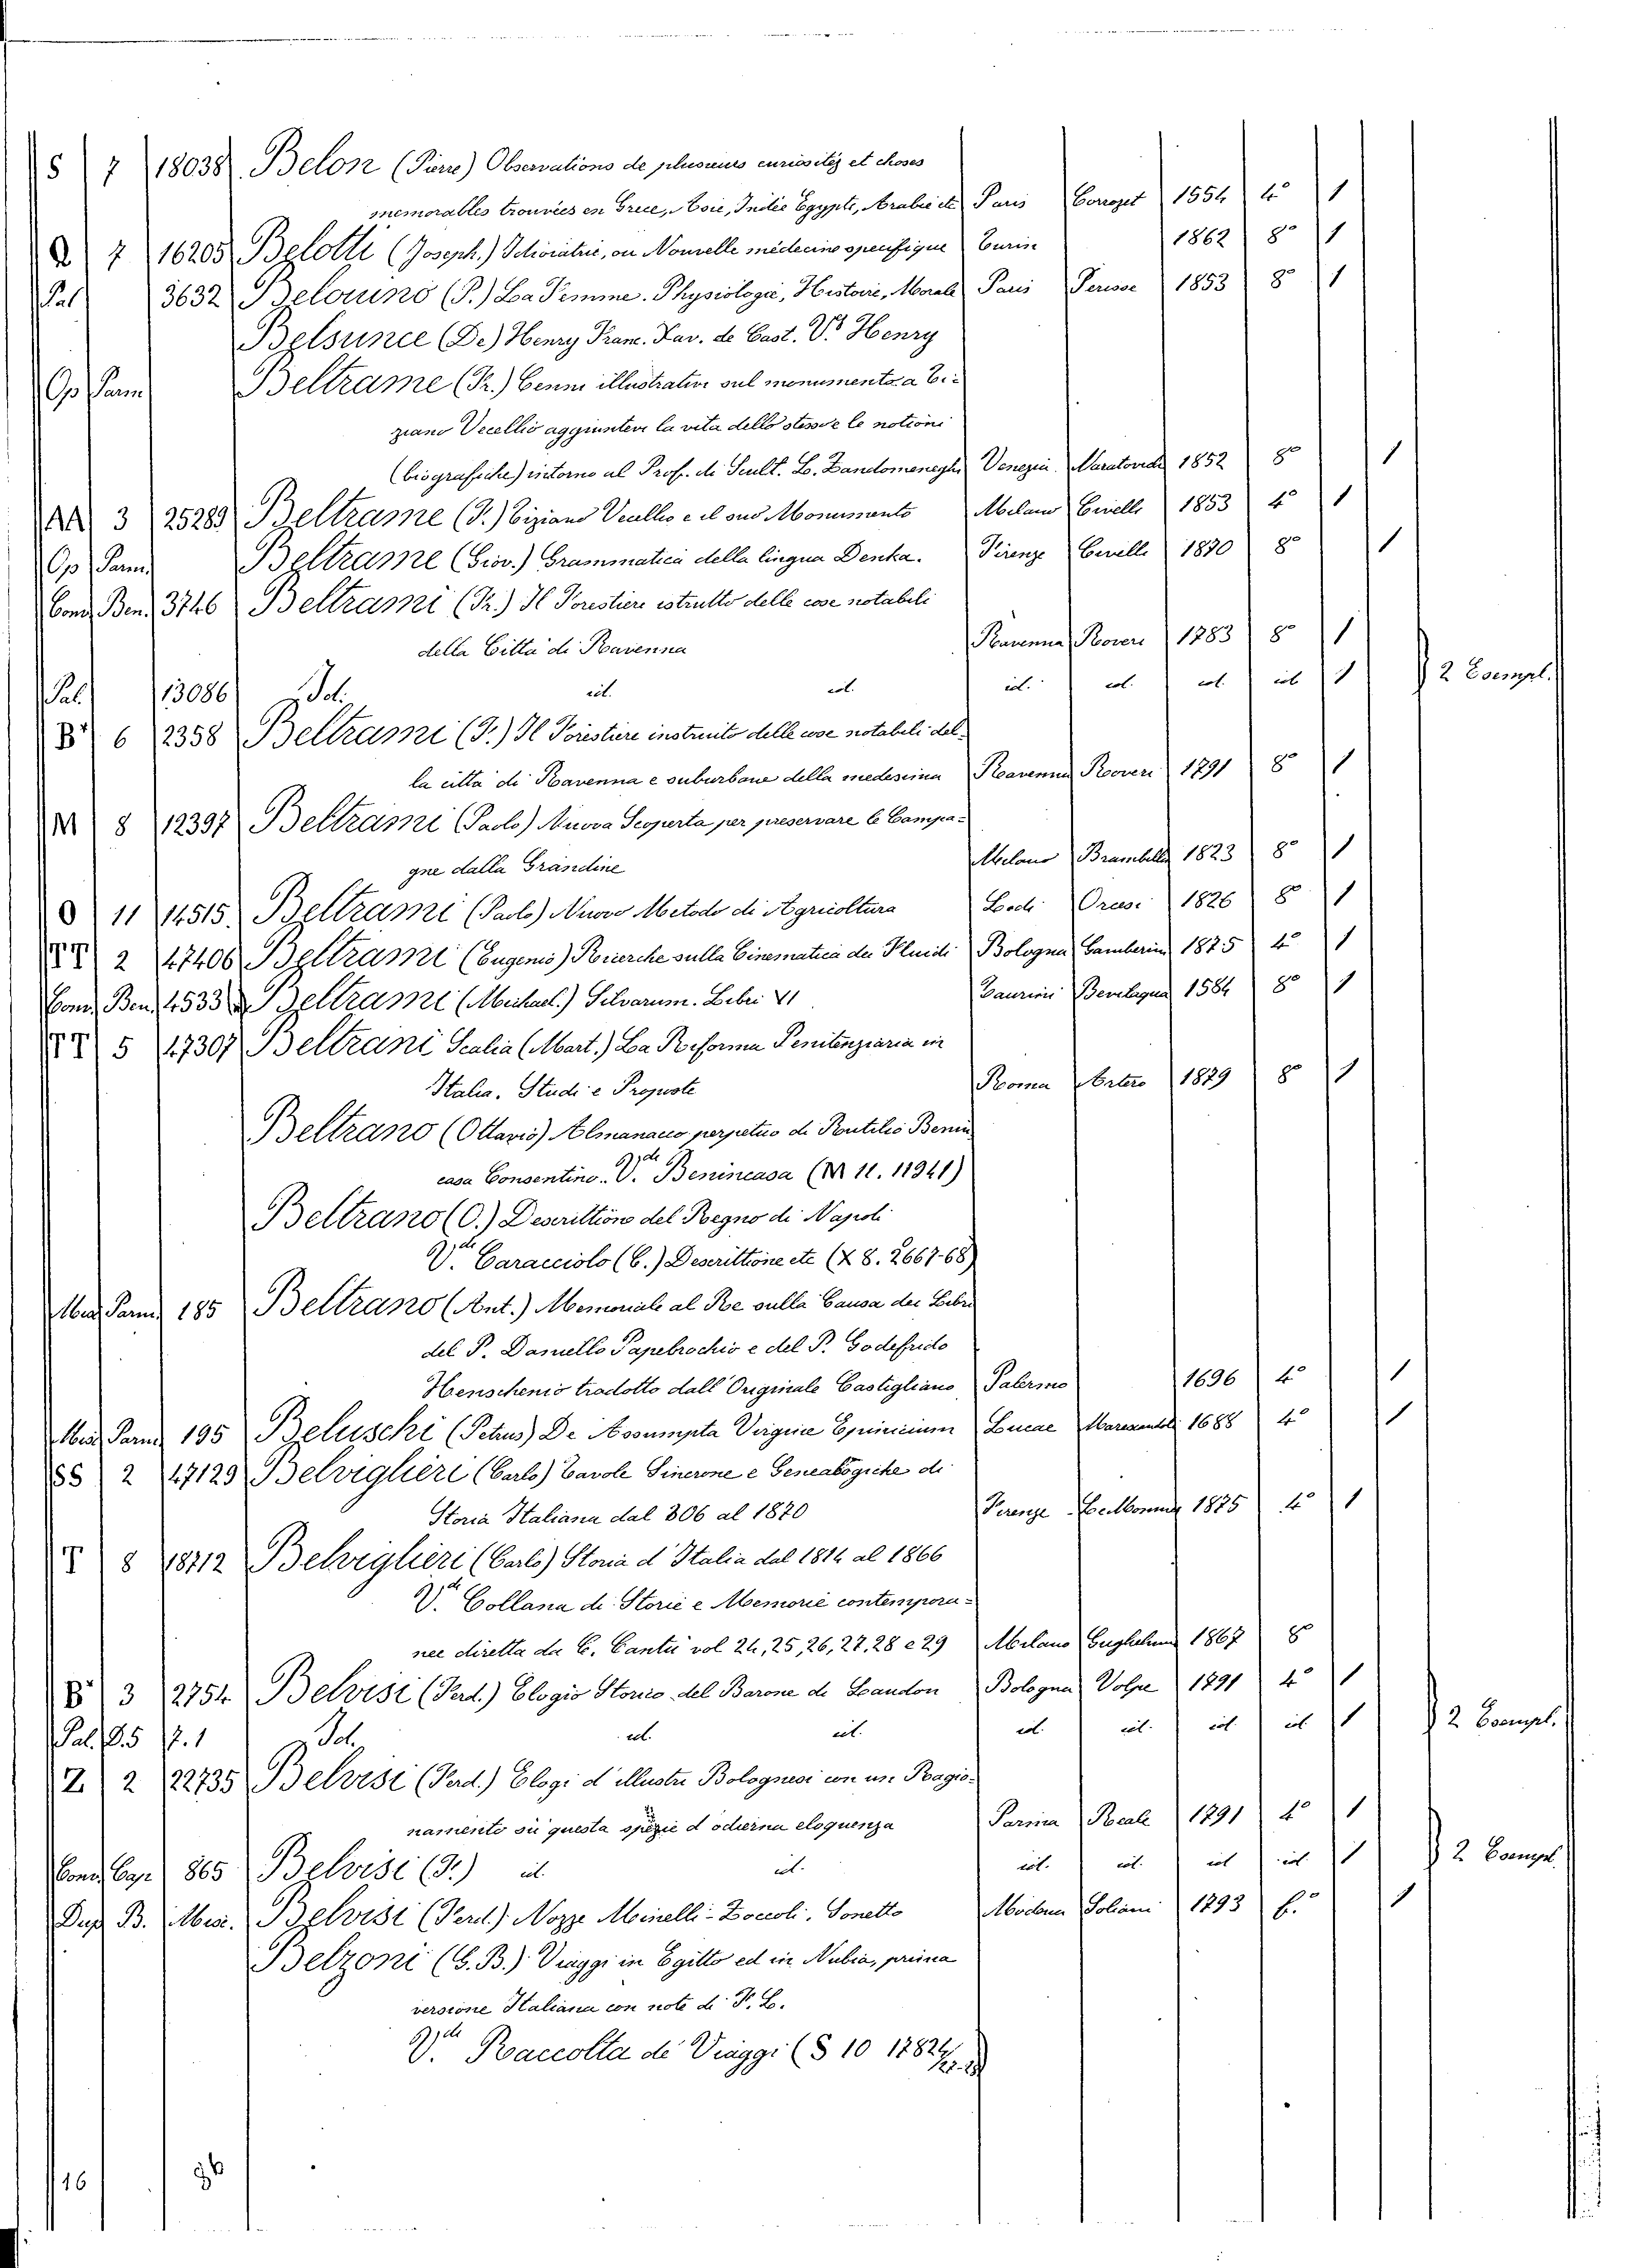 S 7 18038 Belon (Pierre) Observations de plusieurs curiositéz et choses
memorables trouvées en Grece, Asie, Indie Egypte, Arabie etc Paris Corrozet 1554 4° 1
Q 7 16205 Belotti (Joseph.) Ichoriatrie, ou Nouvelle médecine specifique Turin 1862 8° 1
Pal 3632 Belouino (P.) La Femme. Physiologie, Histoire, Morale Paris Perisse 1853 8° 1
Belsunce (De) Henry Franc. Xav. de Cast. V. Henry
Op Parm Beltrame (Fr.) Cenni illustrativi sul monumento a Ti-
ziano Vecellio aggiuntevi la vita dello stesso e le notioni
(biografiche) intorno al Prof. di Scult. L. Zandomeneghi Venezia Naratovich 1852 8° 1
AA 3 25289 Beltrame (F.) Tiziano Vecellio e il suo Monumento Milano Civelli 1853 4° 1
Op Parm Beltrame (Giov.) Grammatica della lingua Denka. Firenze Civelli 1870 8° 1
Cons Ben. 3746 Beltrami (Fr.) Il Forestiere istrutto delle cose notabili
della Città di Ravenna Ravenna Roveri 1783 8° 1
Pal. 13086 Id. id. id. id. id. id. id 1 2 Esempl.
B* 6 2358 Beltrami (F.) Il Forestiere instruito delle cose notabili del-
la città di Ravenna e suburbane della medesima Ravenna Roveri 1791 8° 1
M 8 12397 Beltrami (Paolo) Nuova Scoperta per preservare le Campa-
gne dalla Grandine Milano Brambilla 1823 8° 1
O 11 14515 Beltrami (Paolo) Nuovo Metodo di Agricoltura Lodi Orcesi 1826 8° 1
TT 2 47406 Beltrami (Eugenio) Ricerche sulla Cinematica dei Fluidi Bologna Gamberini 1875 4° 1
Cons. Ben. 4533 Beltrami (Michael.) Silvarum. Libri VI Taurini Bevilaqua 1584 8° 1
TT 5 47307 Beltrani Scalia (Mart.) La Riforma Penitenziaria in
Italia. Studi e Proposte Roma Artero 1879 8° 1
Beltrano (Ottavio) Almanacco perpetuo di Rutilio Benin
casa Consentino. V.de Benincasa (M 11. 11941)
Beltrano (O.) Descrittione del Regno di Napoli
V.de Caracciolo (C.) Descrittione etc (X 8. 2667-68)
Misc Parm 185 Beltrano (Ant.) Memoriale al Re sulla Causa dei Libri
del P. Daniello Papebrochio e del P. Godefrido
Henschenio tradotto dall'Originale Castigliano Palermo 1696 4° 1
Misc Parm 195 Beluschi (Petrus) De Assumpta Virgine Epinicium Lucae Marexandoli 1688 4° 1
SS 2 47129 Belviglieri (Carlo) Tavole Sincrone e Genealogiche di
Storia Italiana dal 306 al 1870 Firenze Lemonnier 1875 4° 1
T 8 18712 Belviglieri (Carlo) Storia d'Italia dal 1814 al 1866
V.de Collana di Storie e Memorie contempora-
nee diretta da C. Cantù vol 24, 25, 26, 27, 28 e 29 Milano Guglielmini 1867 8
B* 3 2754 Belvisi (Ferd.) Elogio Storico del Barone di Laudon Bologna Volpe 1791 4° 1
Pal. 85 7.1 Id. id. id. id. id. id. id. 1 2 Esempl.
Z 2 22735 Belvisi (Ferd.) Elogi d'illustri Bolognesi con un Ragio-
namento su questa spezie d'odierna eloquenza Parma Reale 1791 4° 1
Cons Cap. 865 Belvisi (F.) id. id. id. id. id id 1 2 Esempl
Dup B. Misc. Belvisi (Ferd.) Nozze Minelli-Zoccoli. Sonetto Modena Soliani 1793 f.° 1
Belzoni (G. B.) Viaggi in Egitto ed in Nubia, prima
versione Italiana con note di F. L.
V.de Raccolta di Viaggi (S 10 1782
16